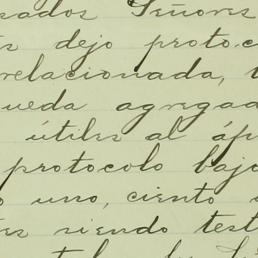 sados Señores
s dejo protoc
relacionada,
ueda agregad
útiles al
protocolo bajo
o uno, ciento
es siendo test